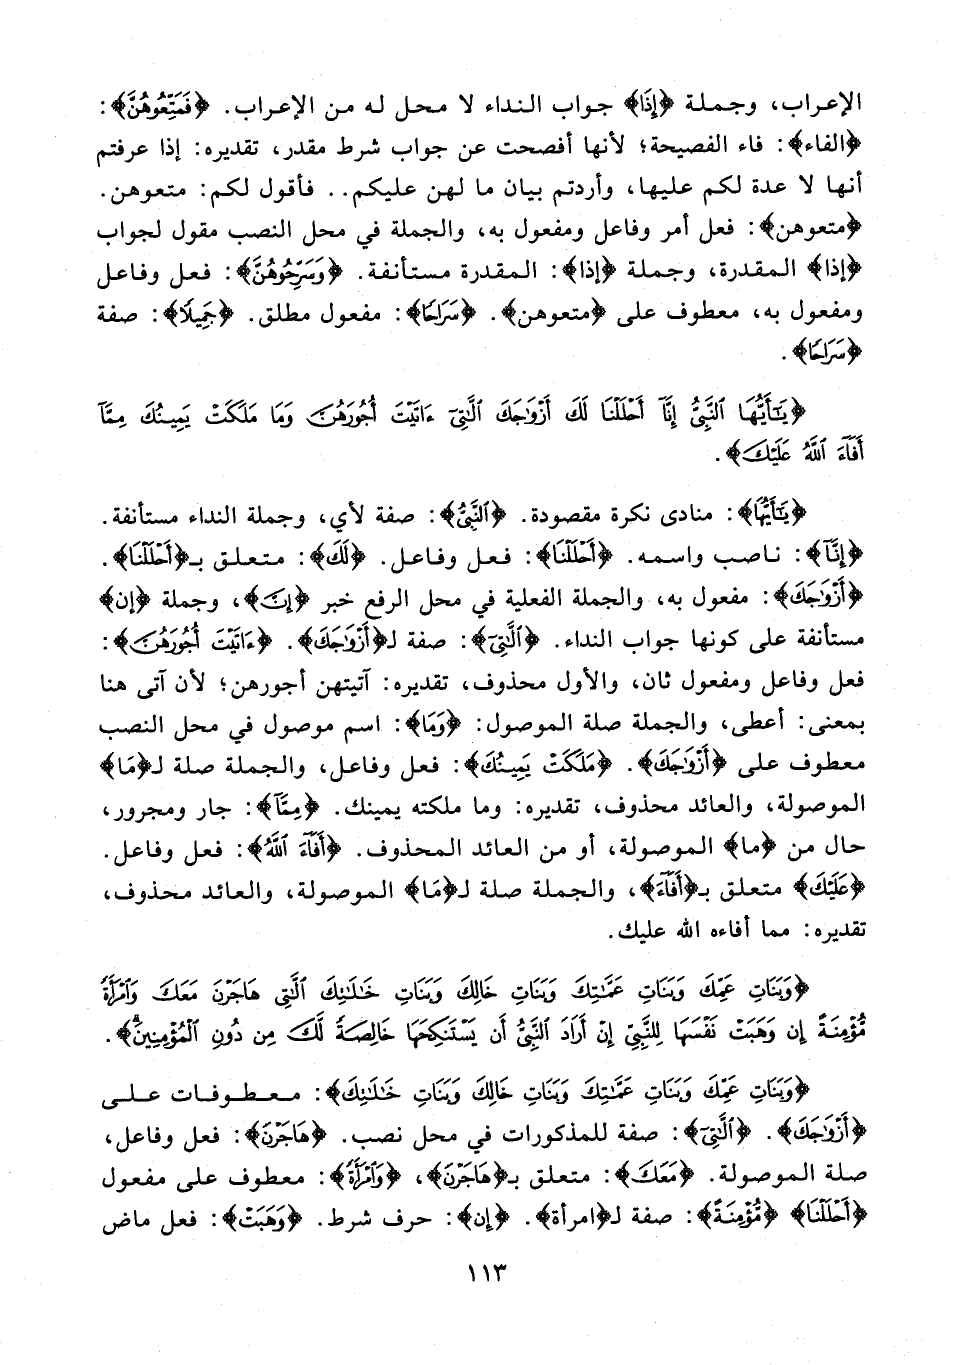 الإعراب، وجملة ﴿إِذَا﴾ جواب النداء لا محل له من الإعراب. ﴿فَمَتِّعُوهُنَّ﴾:
﴿الفاء﴾: فاء الفصيحة؛ لأنها أفصحت عن جواب شرط مقدر، تقديره: إذا عرفتم
أنها لا عدة لكم عليها، وأردتم بيان ما لهن عليكم.. فأقول لكم: متعوهن.
﴿متعوهن﴾: فعل أمر وفاعل ومفعول به، والجملة في محل النصب مقول لجواب
﴿إذا﴾ المقدرة، وجملة ﴿إذا﴾: المقدرة مستأنفة. ﴿وَسَرِّحُوهُنَّ﴾: فعل وفاعل
ومفعول به، معطوف على ﴿متعوهن﴾. ﴿سَرَاحًا﴾: مفعول مطلق. ﴿جَمِيلًا﴾: صفة
﴿سَرَاحًا﴾.
﴿يَٰٓأَيُّهَا ٱلنَّبِىُّ إِنَّآ أَحْلَلْنَا لَكَ أَزْوَٰجَكَ ٱلَّٰتِىٓ ءَاتَيْتَ أُجُورَهُنَّ وَمَا مَلَكَتْ يَمِينُكَ مِمَّآ
أَفَآءَ ٱللَّهُ عَلَيْكَ﴾.
﴿يَٰٓأَيُّهَا﴾: منادى نكرة مقصودة. ﴿ٱلنَّبِىُّ﴾: صفة لأي، وجملة النداء مستأنفة.
﴿إِنَّآ﴾: ناصب واسمه. ﴿أَحْلَلْنَا﴾: فعل وفاعل. ﴿لَكَ﴾: متعلق بـ﴿أَحْلَلْنَا﴾.
﴿أَزْوَٰجَكَ﴾: مفعول به، والجملة الفعلية في محل الرفع خبر ﴿إِنَّ﴾، وجملة ﴿إن﴾
مستأنفة على كونها جواب النداء. ﴿ٱلَّٰتِىٓ﴾: صفة لـ﴿أَزْوَٰجَكَ﴾. ﴿ءَاتَيْتَ أُجُورَهُنَّ﴾:
فعل وفاعل ومفعول ثان، والأول محذوف، تقديره: آتيتهن أجورهن؛ لأن آتى هنا
بمعنى: أعطى، والجملة صلة الموصول: ﴿وَمَا﴾: اسم موصول في محل النصب
معطوف على ﴿أَزْوَٰجَكَ﴾. ﴿مَلَكَتْ يَمِينُكَ﴾: فعل وفاعل، والجملة صلة لـ﴿مَا﴾
الموصولة، والعائد محذوف، تقديره: وما ملكته يمينك. ﴿مِمَّآ﴾: جار ومجرور،
حال من ﴿ما﴾ الموصولة، أو من العائد المحذوف. ﴿أَفَآءَ ٱللَّهُ﴾: فعل وفاعل.
﴿عَلَيْكَ﴾ متعلق بـ﴿أَفَآءَ﴾، والجملة صلة لـ﴿مَا﴾ الموصولة، والعائد محذوف،
تقديره: مما أفاءه الله عليك.
﴿وَبَنَاتِ عَمِّكَ وَبَنَاتِ عَمَّٰتِكَ وَبَنَاتِ خَالِكَ وَبَنَاتِ خَٰلَٰتِكَ ٱلَّٰتِى هَاجَرْنَ مَعَكَ وَٱمْرَأَةً
مُّؤْمِنَةً إِن وَهَبَتْ نَفْسَهَا لِلنَّبِىِّ إِنْ أَرَادَ ٱلنَّبِىُّ أَن يَسْتَنكِحَهَا خَالِصَةً لَّكَ مِن دُونِ ٱلْمُؤْمِنِينَ﴾.
﴿وَبَنَاتِ عَمِّكَ وَبَنَاتِ عَمَّٰتِكَ وَبَنَاتِ خَالِكَ وَبَنَاتِ خَٰلَٰتِكَ﴾: معطوفات على
﴿أَزْوَٰجَكَ﴾. ﴿ٱلَّٰتِىٓ﴾: صفة للمذكورات في محل نصب. ﴿هَاجَرْنَ﴾: فعل وفاعل،
صلة الموصولة. ﴿مَعَكَ﴾: متعلق بـ﴿هَاجَرْنَ﴾، ﴿وَٱمْرَأَةً﴾: معطوف على مفعول
﴿أَحْلَلْنَا﴾ ﴿مُّؤْمِنَةً﴾: صفة لـ﴿امرأة﴾. ﴿إِن﴾: حرف شرط. ﴿وَهَبَتْ﴾: فعل ماض
١١٣